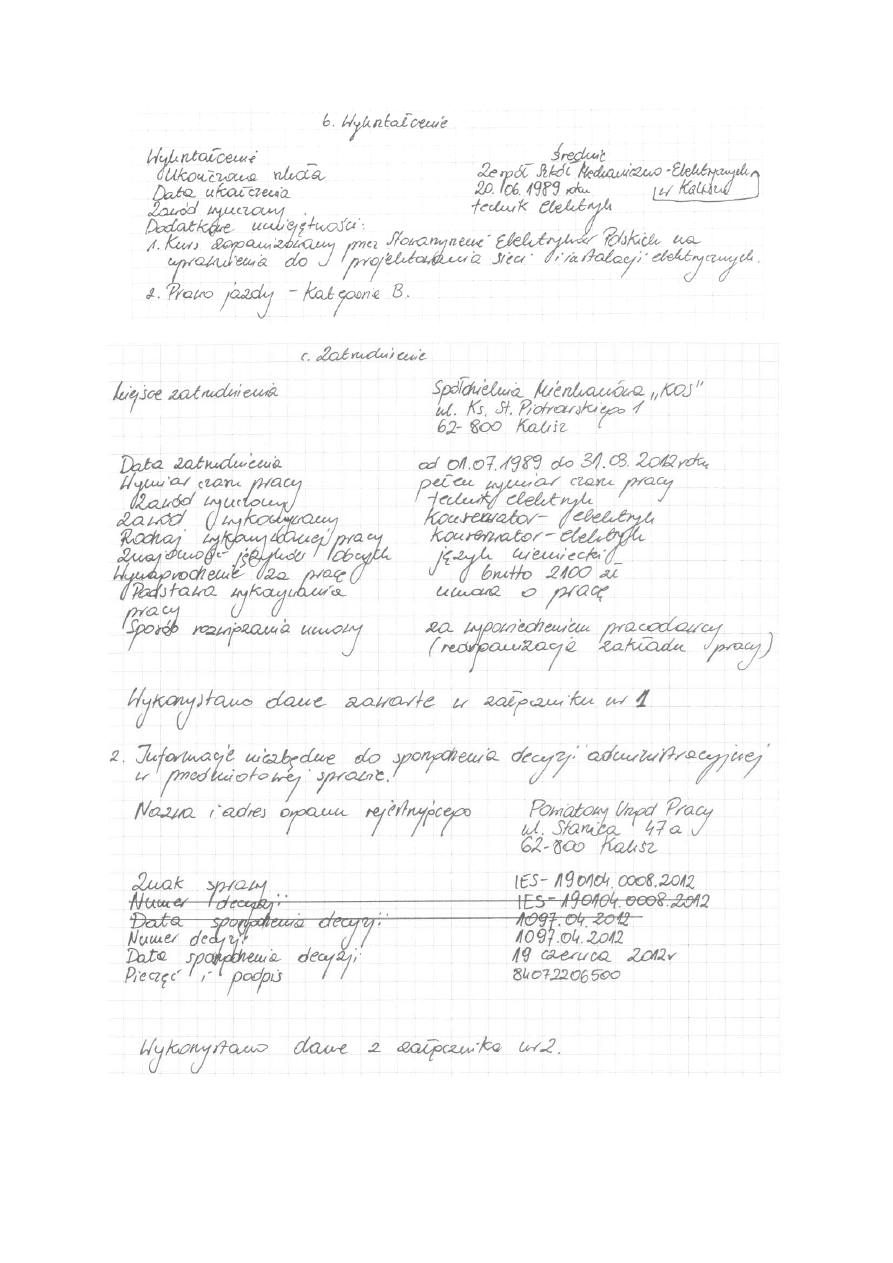 b. Wykształcenie
Wykształcenie średnie
Ukończona szkoła Zespół Szkół Mechaniczno-Elektrycznych w Kaliszu
Data ukończenia 20.06.1989 roku
Zawód wyuczony technik elektryk
Dodatkowe umiejętności:
1. Kurs zorganizowany przez Stowarzyszenie Elektryków Polskich na
uprawnienia do projektowania sieci i instalacji elektrycznych.
2. Prawo jazdy - Kategoria B.
c. Zatrudnienie
Miejsce zatrudnienia Spółdzielnia Mieszkaniowa „KOS"
ul. Ks. St. Piotrowskiego 1
62-800 Kalisz
Data zatrudnienia od 01.07.1989 do 31.03.2012 roku
Wymiar czasu pracy pełen wymiar czasu pracy
Zawód wyuczony technik elektryk
Zawód wykonywany konserwator - elektryk
Rodzaj wykonywanej pracy konserwator - elektryk
Znajomość języków obcych język niemiecki
Wynagrodzenie za pracę brutto 2100 zł
Podstawa wykonywania umowa o pracę
pracy
Sposób rozwiązania umowy za wypowiedzeniem pracodawcy
(reorganizacja zakładu pracy)
Wykorzystano dane zawarte w załączniku nr 1
2. Informacje niezbędne do sporządzenia decyzji administracyjnej
w przedmiotowej sprawie.
Nazwa i adres organu rejestrującego Powiatowy Urząd Pracy
ul. Stanica 47a
62-800 Kalisz
Znak sprawy IES-190104.0008.2012
Numer decyzji: IES-190104.0008.2012
Data sporządzenia decyzji: 1097.04.2012
Numer decyzji 1097.04.2012
Data sporządzenia decyzji 19 czerwca 2012r
Pieczęć i podpis 84072206500
Wykorzystano dane z załącznika nr 2.